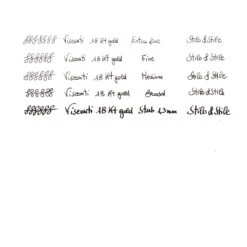 Visconti 18 Kt gold Extra fine Stilo & Stile
Visconti 18 Kt gold Fine Stilo & Stile
Visconti 18 Kt gold Medium Stilo & Stile
Visconti 18 Kt gold Broad Stilo & Stile
Visconti 18 Kt gold Stub 1.3 mm Stilo & Stile